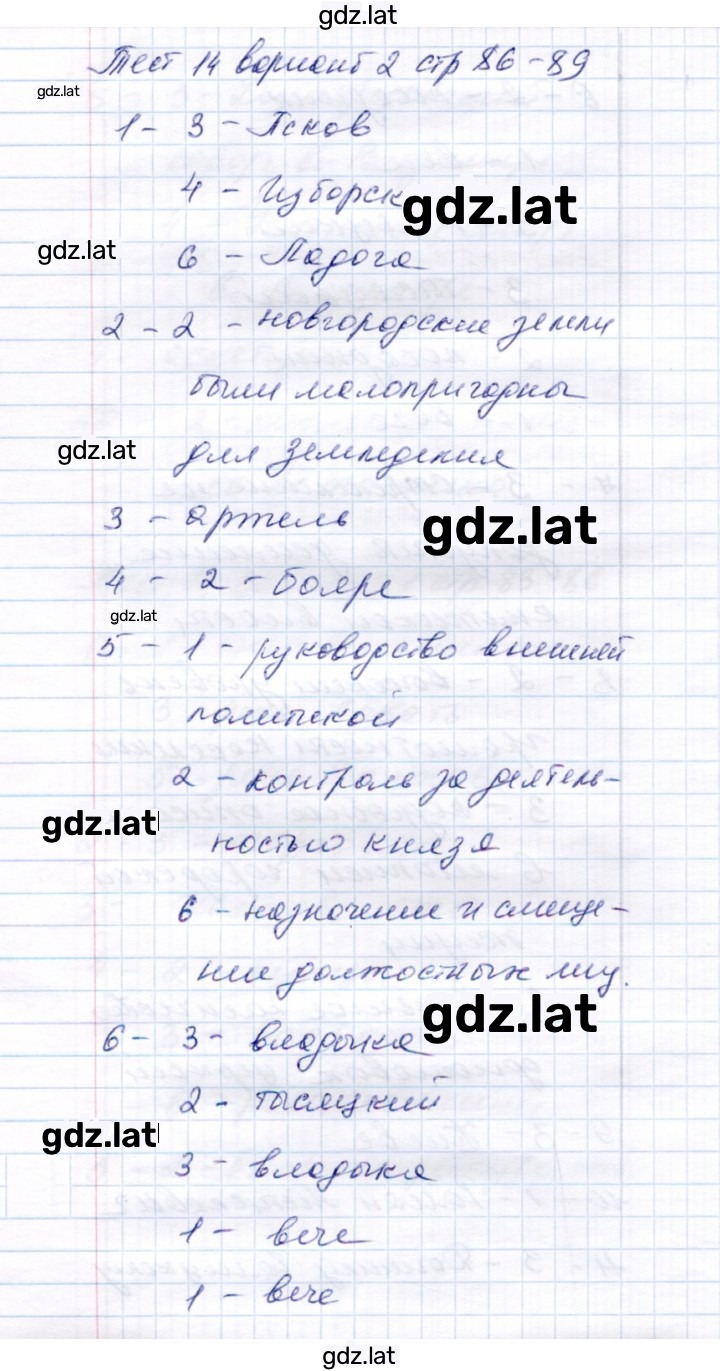 gdz.lat
Тест 14 вариант 2 стр 86-89
gdz.lat
1 - 3 - Псков
4 - Изборск
gdz.lat
gdz.lat
6 - Ладога
2 - 2 - новгородские земли
были малопригодны
gdz.lat
для земледелия
3 - артель
gdz.lat
4 - 2 - бояре
gdz.lat
5 - 1 - руководство внешней
политикой
2 - контроль за деятель-
gdz.lat
ностью князя
6 - назначение и смеще-
ние должностных лиц.
gdz.lat
6 - 3 - владыка
2 - тысяцкий
gdz.lat
3 - владыка
1 - вече
1 - вече
gdz.lat